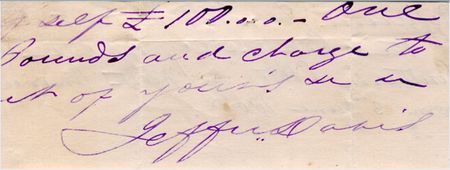 self £ 100.0.0. - One
Pounds and charge to
of yours
Jeffn. Davis